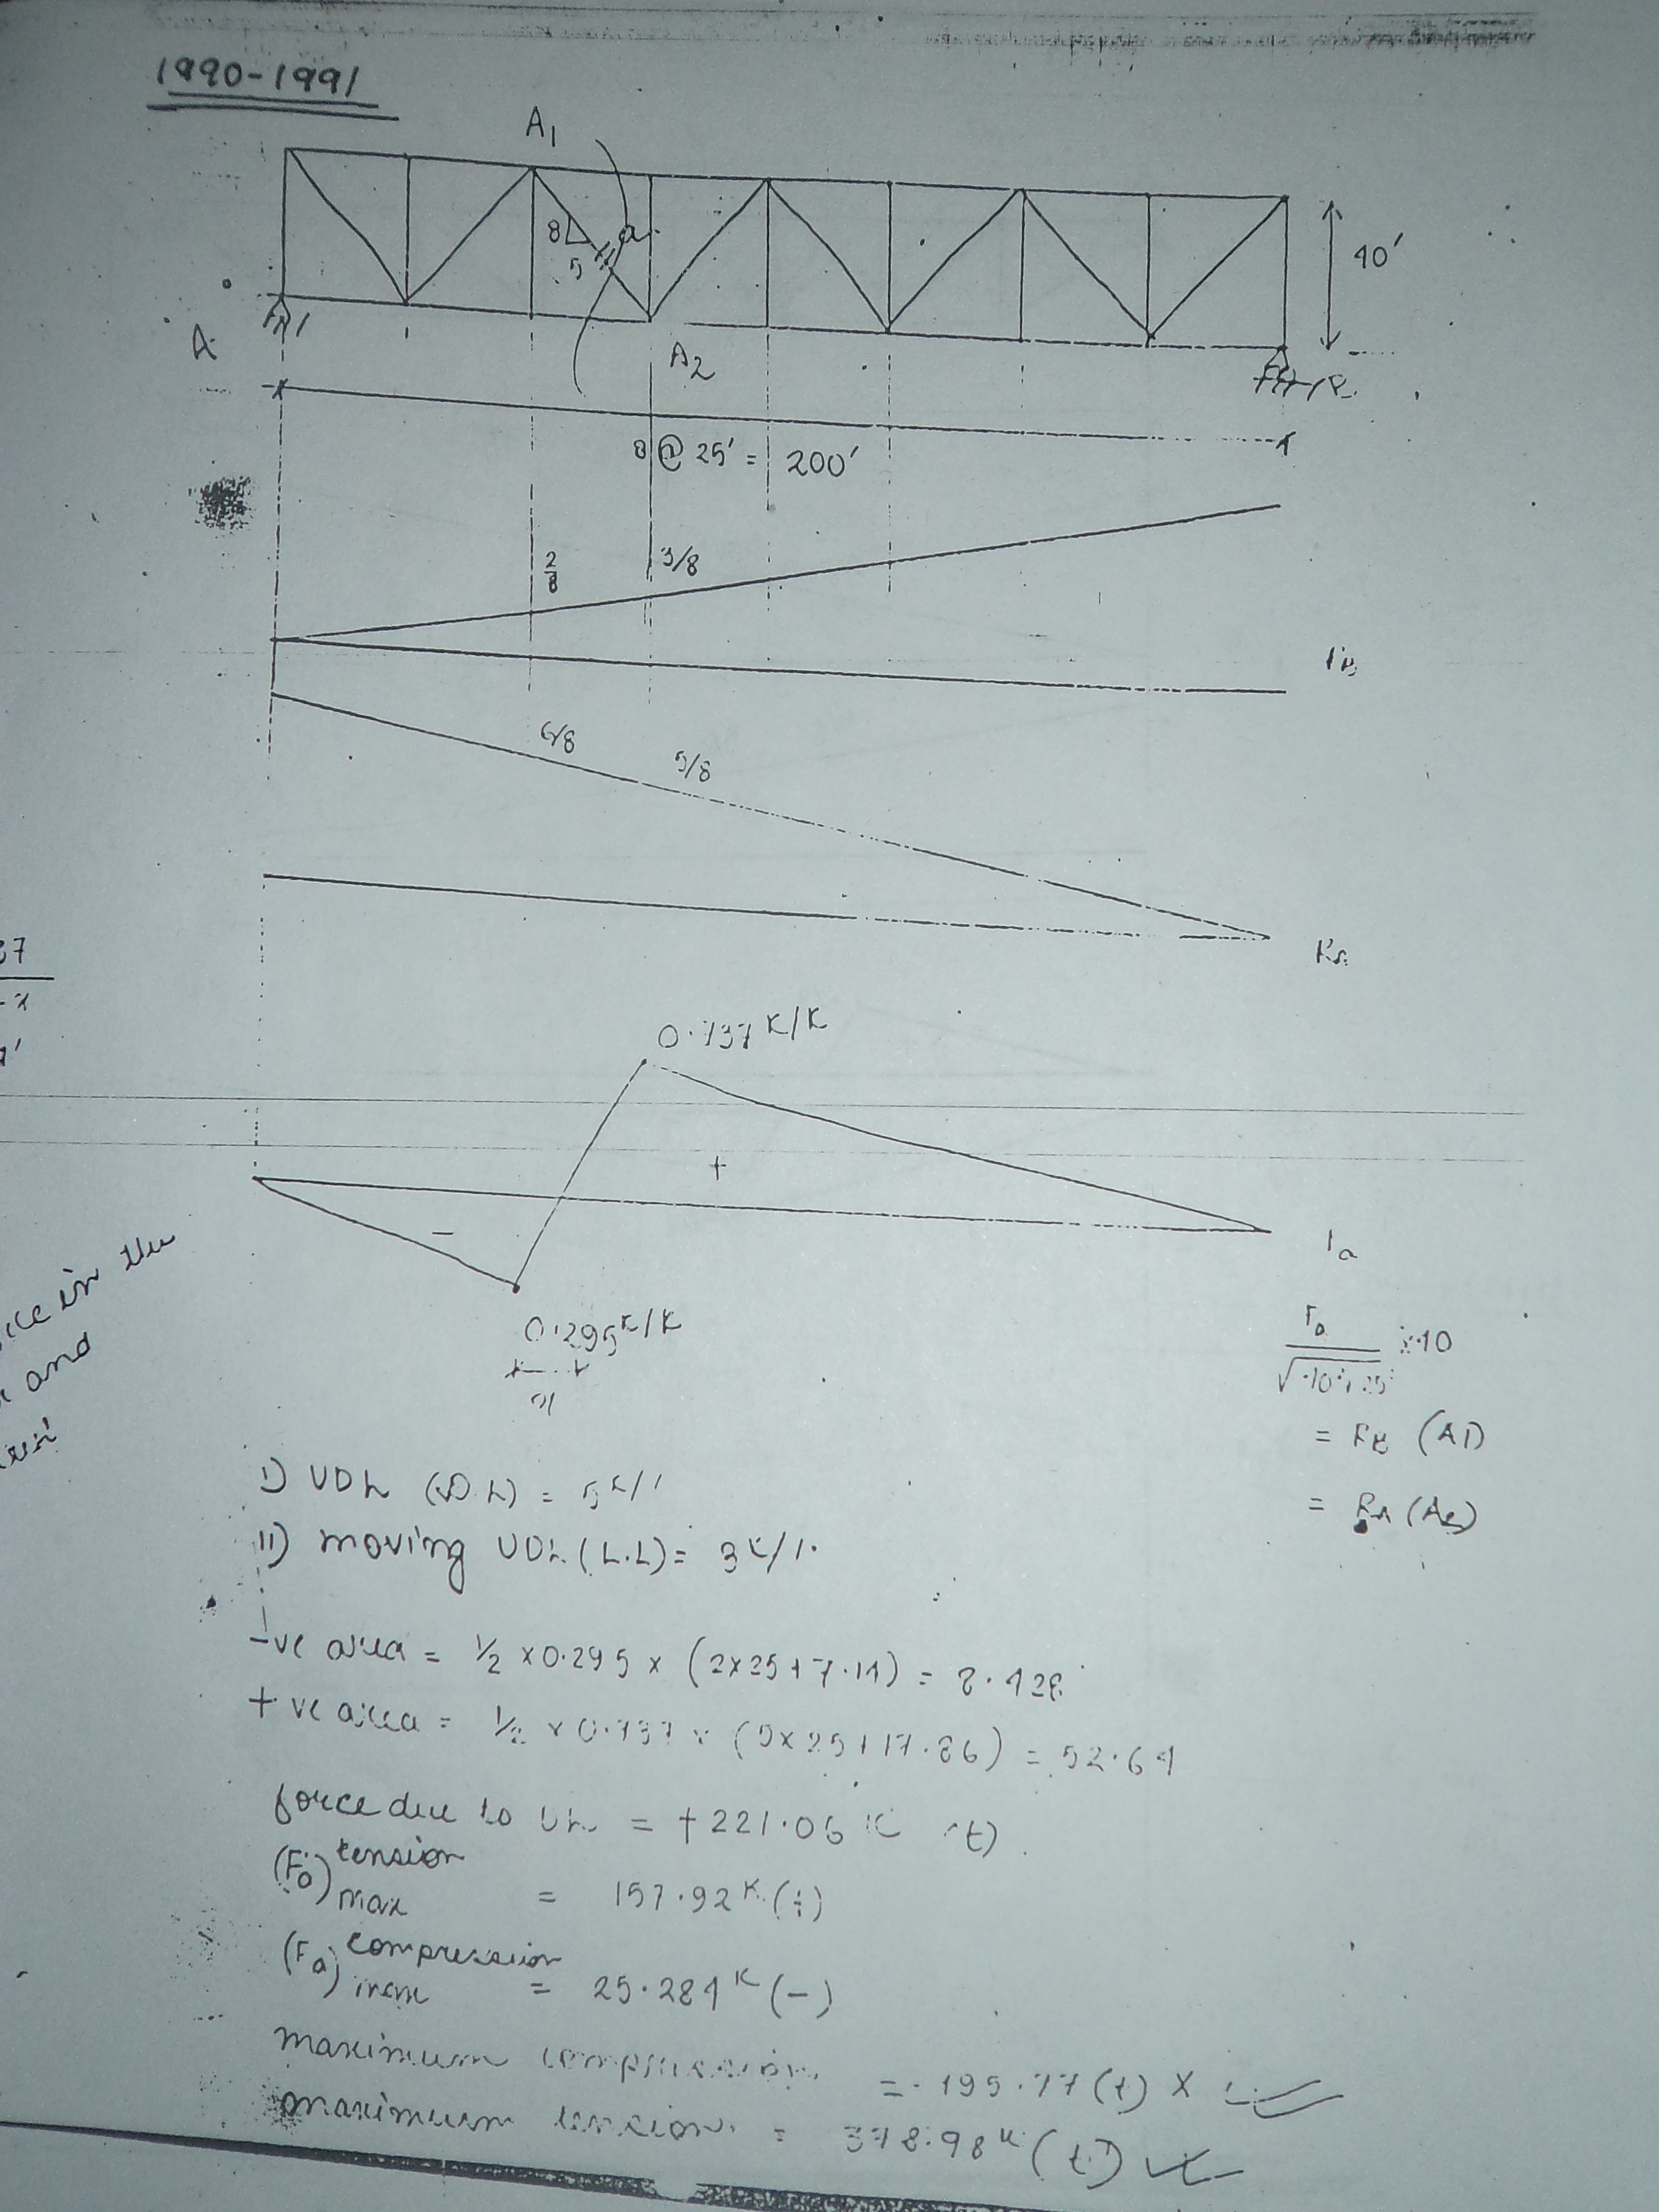 1990-1991
A1
8
5
a
40'
A
A2
8 @ 25' = 200'
2/8
3/8
6/8
5/8
RA
37
0.737 K/K
+
-
Ia
ce in the
and
0.295 K/K
= RB (A1)
= RA (A2)
I) UDL (D.L) = 5K/'
II) moving UDL (L.L) = 3K/'
-ve area = 1/2 x 0.295 x (2x25+7.14) = 8.428
+ve area = 1/2 x 0.737 x (5x25+17.86) = 52.64
force due to DL = +221.06 K (t)
(Fa) tension max = 157.92 K (t)
(Fa) compression max = 25.284 K (-)
maximum compression = 195.77 (t) X
maximum tension = 378.98 K (t)